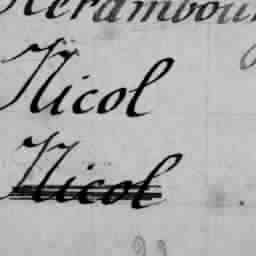 Kerambour
Nicol
Nicol